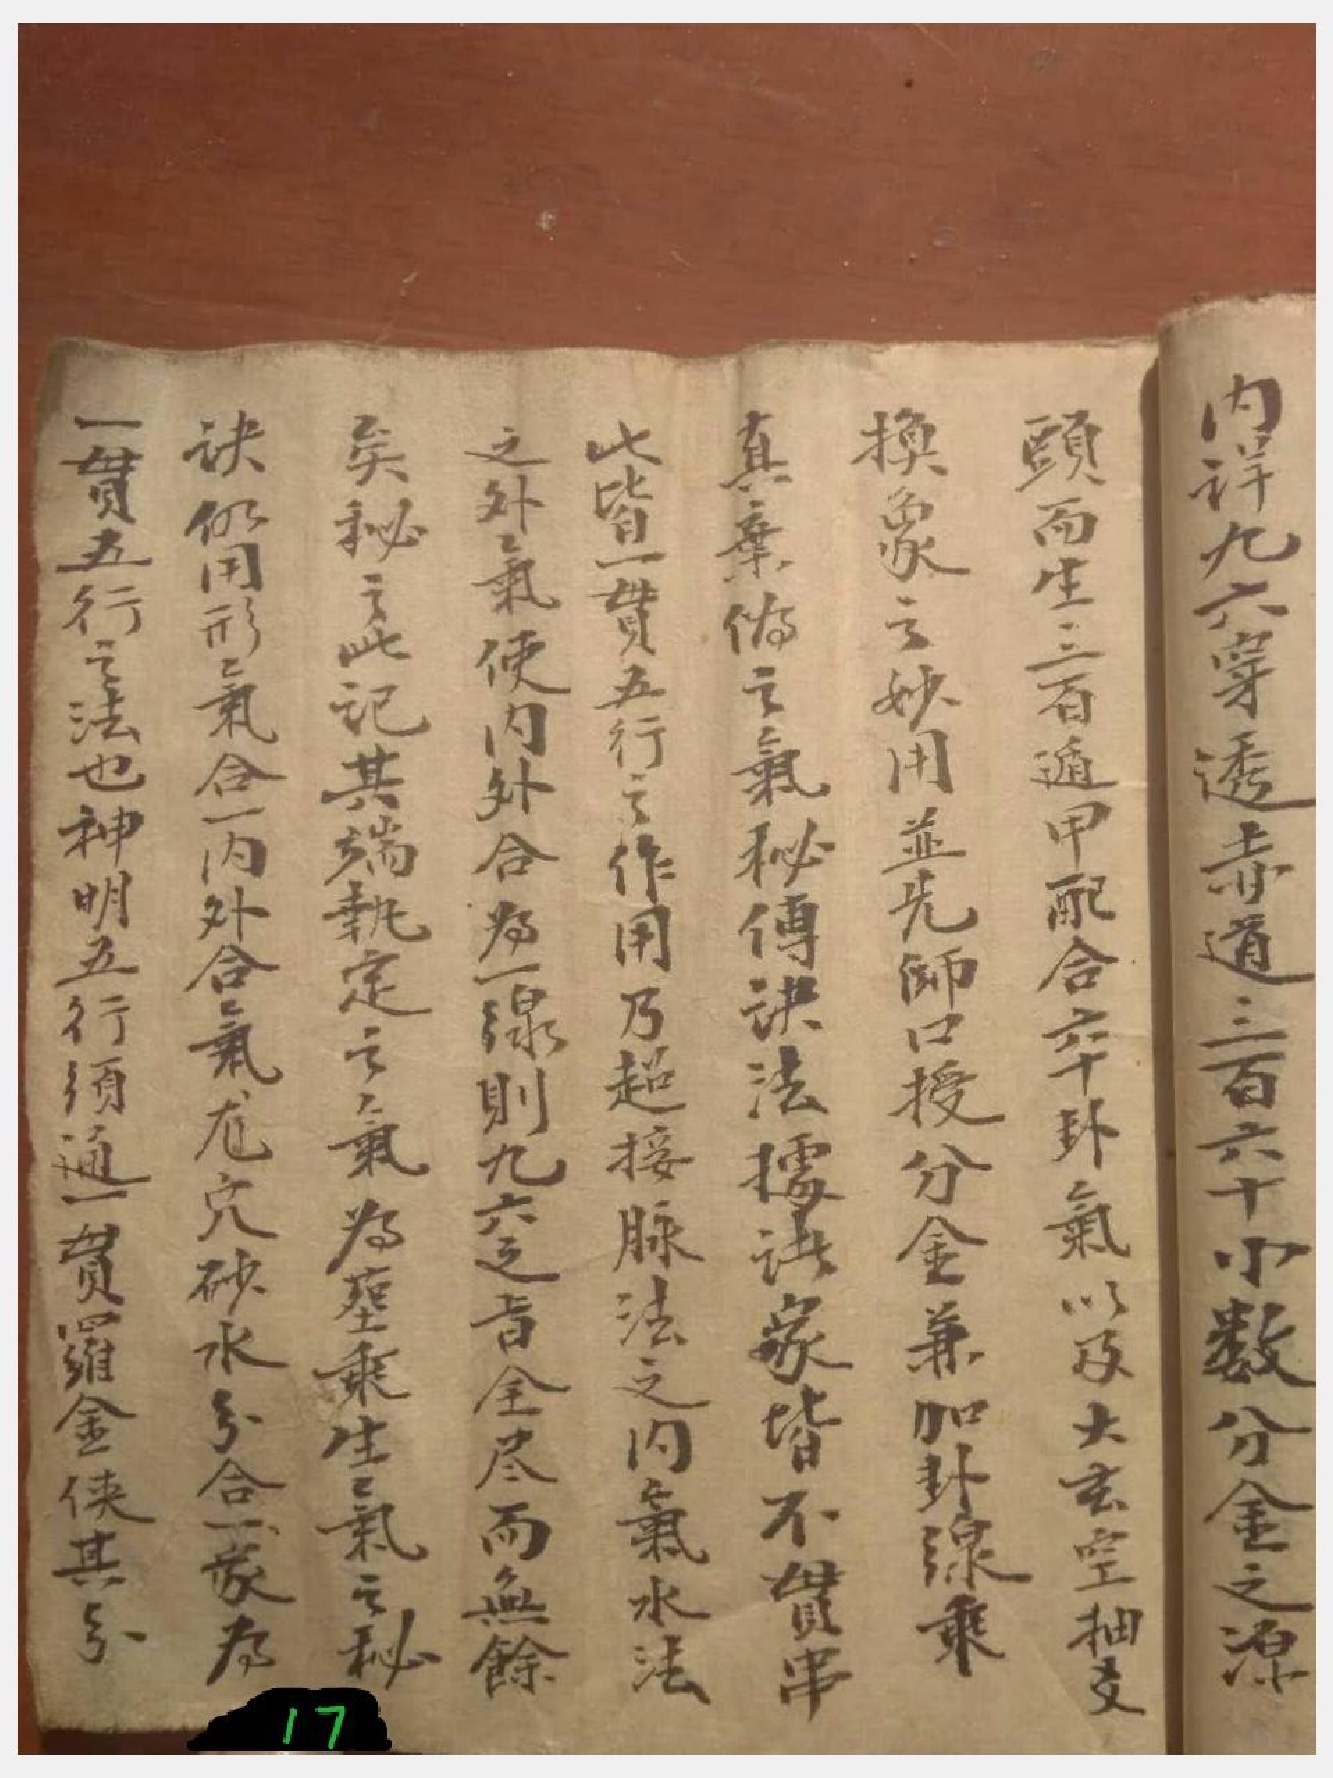 內詳九六穿透赤道三百六十小數分金之源
頭而生三百遁甲配合六十卦氣以及大玄空抽爻
換象之妙用並先師口授分金兼加卦線乘
真棄偽之氣秘傳訣法據諸家皆不貫串
此皆一貫五行之作用乃超接脉法之內氣水法
之外氣使內外合為一線則九六之旨全尽而無餘
矣秘之此記其端執定之氣為聖乘生氣之秘
訣仍用形氣合一內外合氣龙穴砂水分合一家為
一貫五行之法也神明五行須通一貫羅金俠其分
17